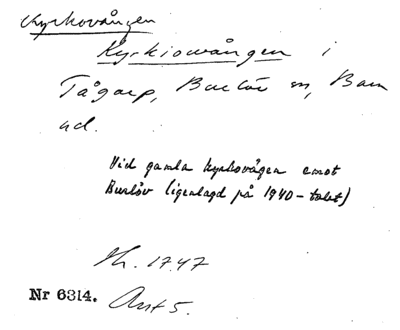 Kyrkovången
Kyrkiowången i
Tågarp, Burlöv sn, Bara
hd.
Vid gamla kyrkovägen emot
Burlöv (igenlagd på 1940-talet)
Sk. 1747
Nr 6314. Akt 5.